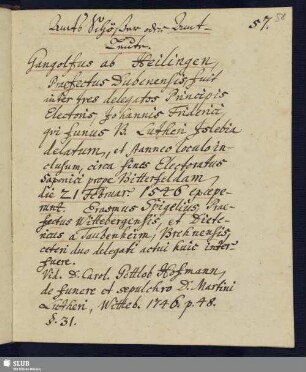 57.
58
Amts Schößer oder Amt-
Leute.
Gangolfus ab Heilingen,
Praefectus Dubenensis, fuit
inter tres delegatos Principis
Electoris, Johannis Friderici,
qvi funus B. Lutheri Islebia
delatum, et stanneo loculo in-
clusum, circa fines Electoratus
Saxonici prope Bitterfeldam,
die 21 Februar. 1546 excepe-
runt. Erasmus Spigelius, Prae-
fectus Wittebergensis, et Diete-
ricus a Taubenheim, Brehnensis,
ceteri duo delegati actui huic inter
fuere.
Vid. D. Carol. Gottlob Hofmann,
de funere et sepulchro D. Martini
Lutheri, Witteb. 1746, p. 48.
§. 31.
SLUB
Wir führen Wissen.